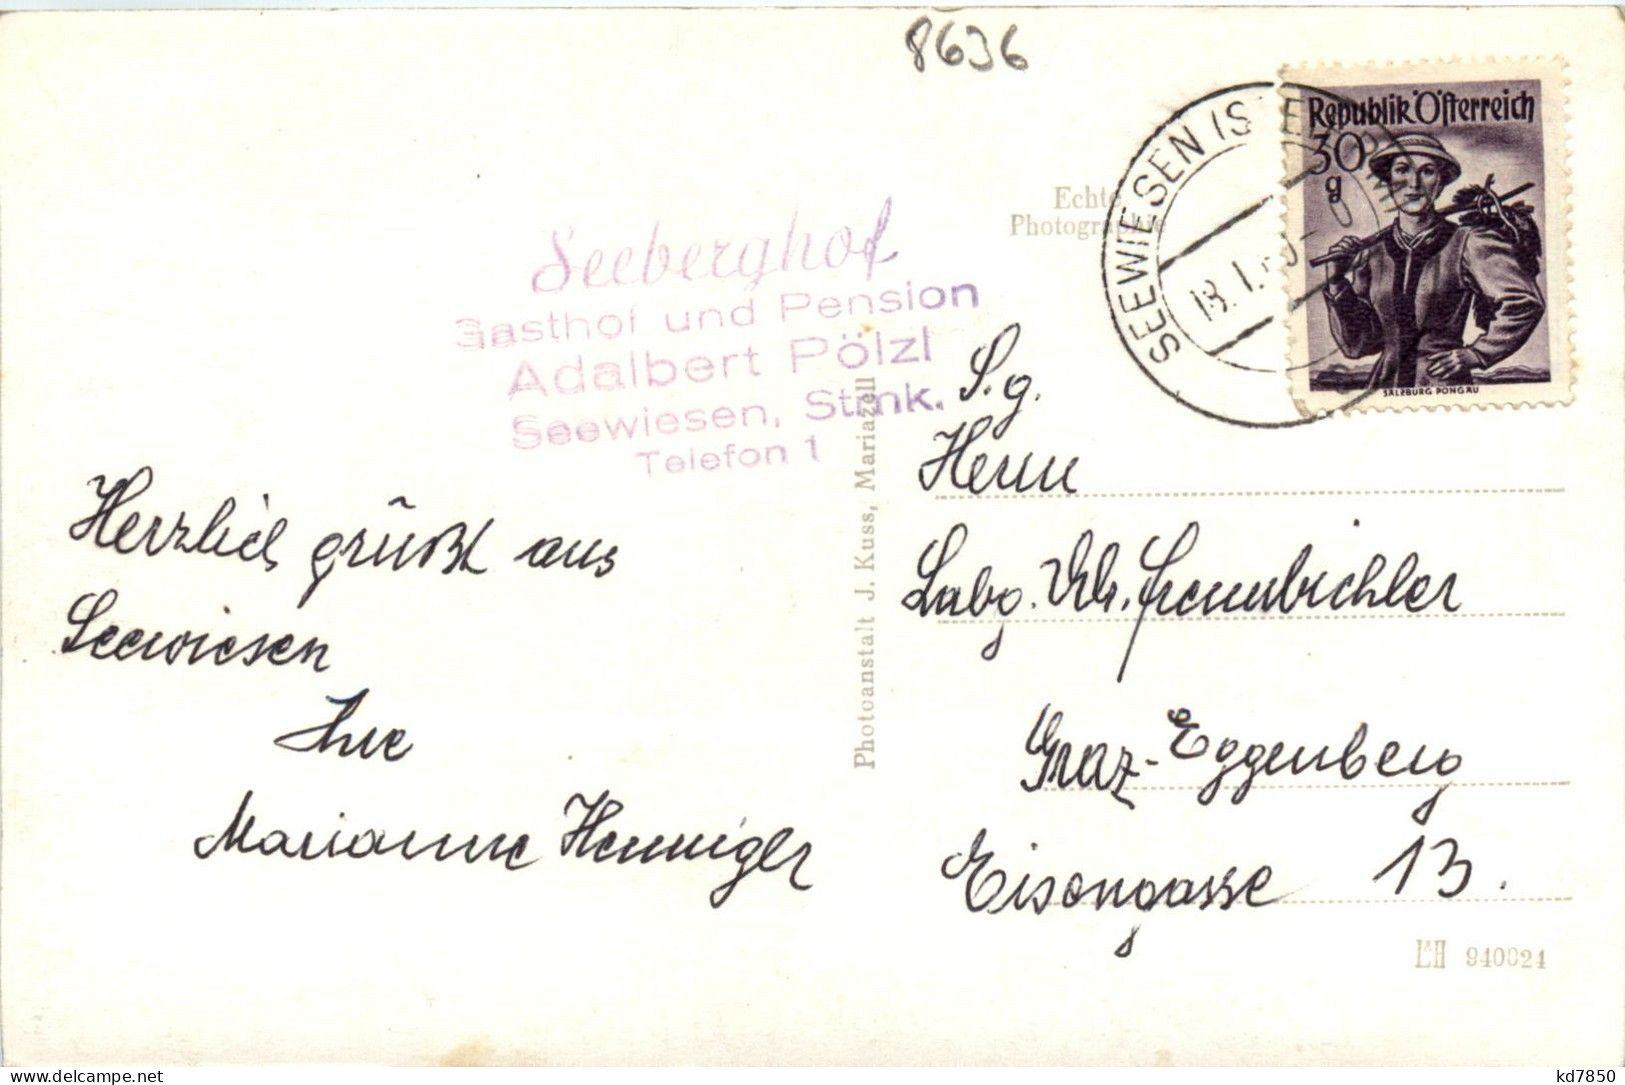 8636
Republik Österreich
30
g
SALZBURG PONGAU
SEEWIESEN
18. I.
Echte
Photographie
Seeberghof
Gasthof und Pension
Adalbert Pölzl
Seewiesen, Stmk.
Telefon 1
Photoanstalt J. Kuss, Mariazell
Herzlich grüßt aus
Seewiesen
Ihre
Marianne Henniger
S.g.
Herrn
Graz-Eggenberg
Eisengasse 13.
L&H 940024
delcampe.net
kd7850